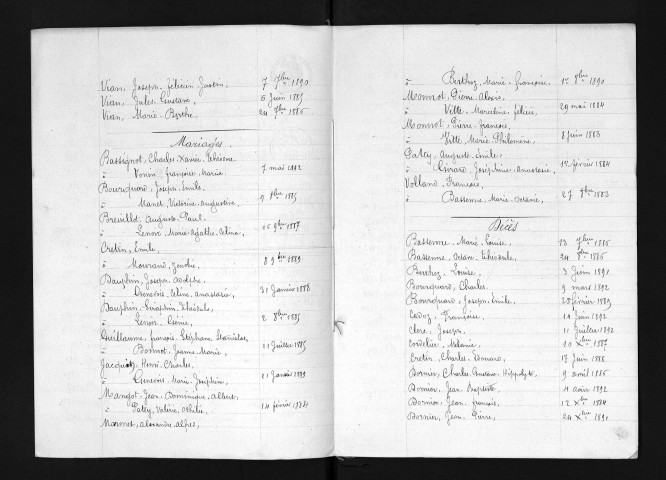 Vian, Joseph, Félicien Justin, 7 7bre 1890
Vian, Jules Gustave, 6 Juin 1885
Vian, Marie Berthe, 24 7bre 1886
Mariages.
Bassignot, Charles Xavier
à Vonin françoise Marie 7 mai 1892
Bourquard, Joseph Emile
à Manet, Victorine Augustine 1885
Breuillot Auguste Paul
à Lenoir Marie Agathe Célina 16 9bre 1887
Cretin, Emile
à Mourand, 8 1889
Dauphin, Joseph Adolphe
à Genevois, Célina Anastasie, 31 Janvier 1888
Dauphin, Séraphin
à Lenoir, 2 8bre 1885
Guillaume, françois, Stéphane Stanislas
à Bonnot, Jeanne Marie, 11 Juillet 1885
Jacques, Henri Charles
à Genevois, Marie Joséphine, 21 Janvier 1889
Mangot, Jean Dominique Albert
à Patey, Valérie 14 février 1884
Marmet, Alexandre
à Berthez, Marie françoise. 1er 8bre 1890
Monnot, Pierre
à Vitte, Marceline félicie, 29 mai 1884
Monnot, Pierre françois,
à Vitte Marie Philomène, 8 Juin 1883
Patey, Auguste Emile,
à Girard, Joséphine Anastasie, 1er février 1884
Volland, François,
à Bassenne, Marie 27 1883
Décès
Bassenne, Marie Louise, 13 1886
Bassenne, 24 8bre 1886
Berthez, Louise, 3 Juin 1891
Bourquard, Charles, 9 mars 1892
Bourquard, Joseph, Emile, 20 février 1889
Cadoz, Françoise, 14 Juin 1892
Clerc, Joseph, 11 Juillet 1892
Cordelier, Mélanie, 10 Xbre 1887
Cretin, Charles Edouard, 17 Juin 1888
Bornier, Charles Gustave Hippolyte, 9 avril 1886
Bornier, Jean Baptiste, 4 août 1892
Bornier, Jean françois, 12 Xbre 1884
Bornier, Jean Pierre, 24 Xbre 1891